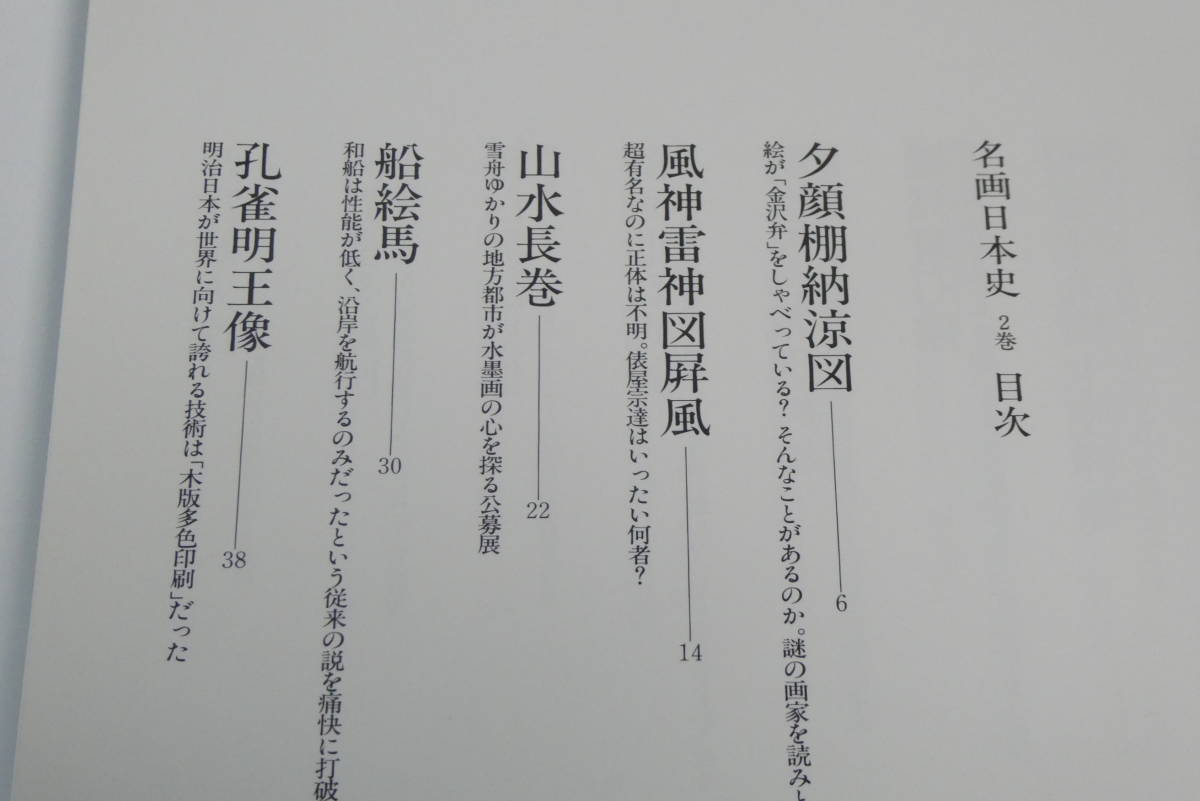 名画日本史 2巻 目次
夕顔棚納涼図 6
絵が「金沢弁」をしゃべっている? そんなことがあるのか。謎の画家を読みと
風神雷神図屛風 14
超有名なのに正体は不明。俵屋宗達はいったい何者?
山水長巻 22
雪舟ゆかりの地方都市が水墨画の心を探る公募展
船絵馬 30
和船は性能が低く、沿岸を航行するのみだったという従来の説を痛快に打破
孔雀明王像 38
明治日本が世界に向けて誇れる技術は「木版多色印刷」だった